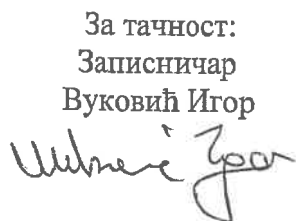 За тачност:
Записничар
Вуковић Игор